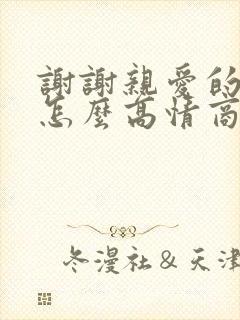 謝謝親愛的
怎麼高情商
冬漫社&天津